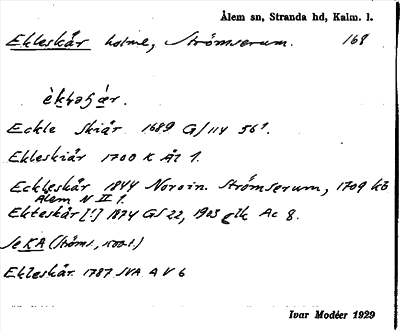 Ålem sn, Stranda hd, Kalm. l.
Ekleskär holme, Strömserum. 168
Eckle Skiär 1689 G/114 56¹.
Ekleskiär 1700 K Å2 1.
Eckleskär 1844 Norvin. Strömserum, 1709 KB
Ålem N II 1.
Ekteskär [!] 1874 GS 22, 1903 elk Ac 8.
Se KA (Ströms,
Ekleskär 1787 JVA A V 6
Ivar Modéer 1929